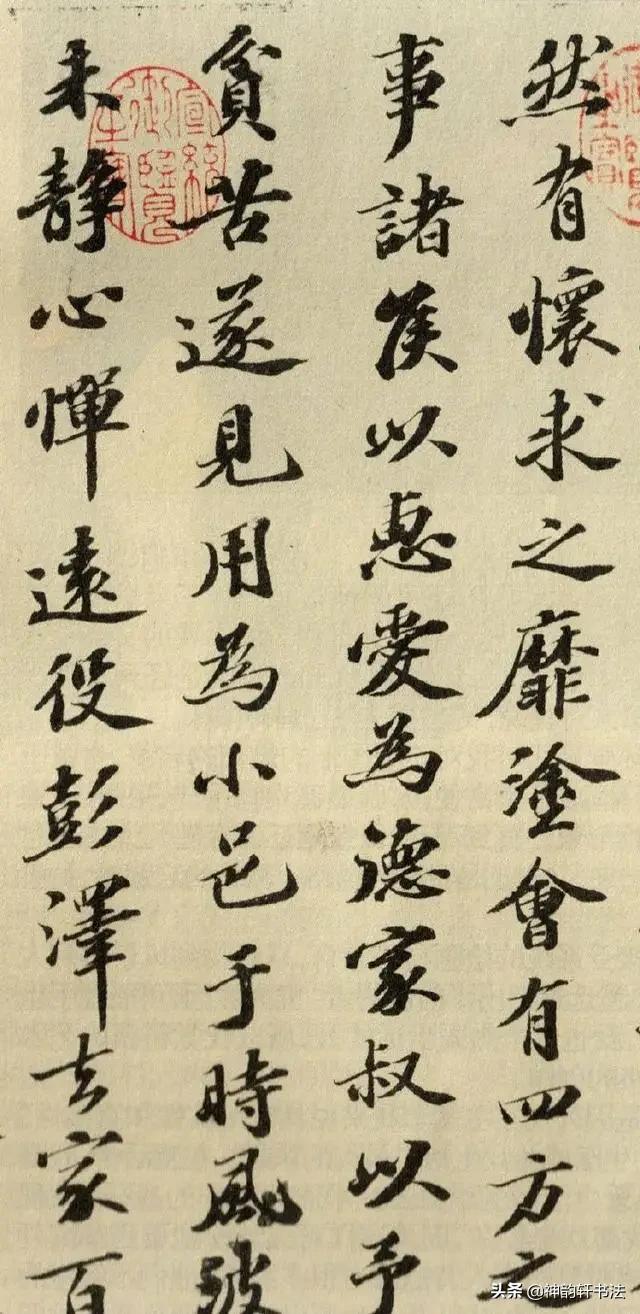 然有懷求之靡塗會有四方之
事諸侯以惠愛為德家叔以予
貧苦遂見用為小邑于時風波
未静心憚遠役彭澤去家百
宣統御覽之寶
头条 @神韵轩书法